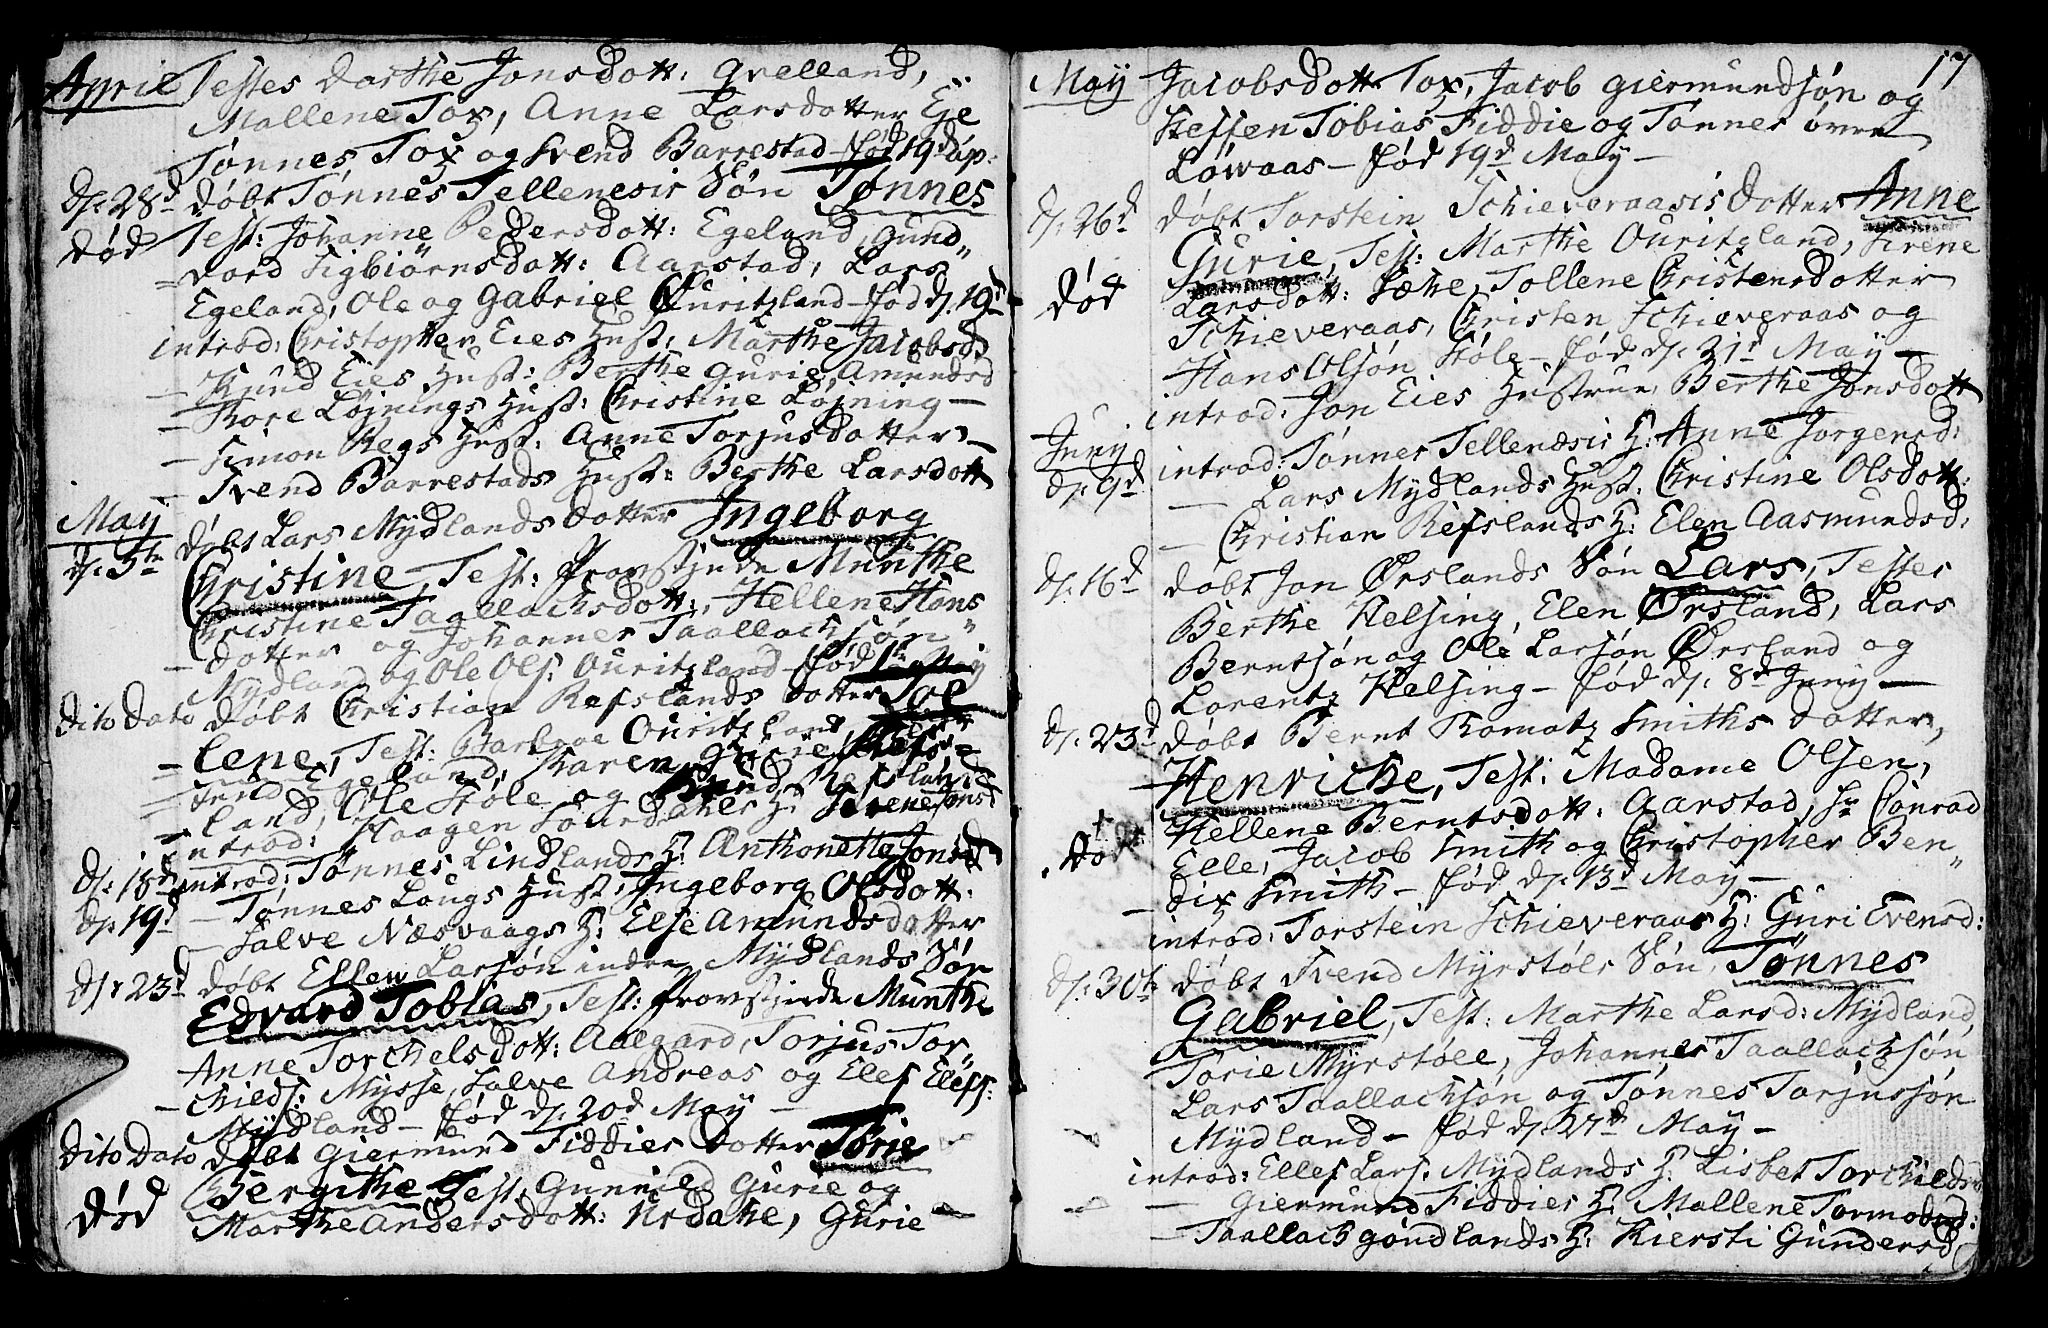 April Testes Dorthe Jonsdott: Qvelland,
Mallene Tox, Anne Larsdotter Eje
Tønnes Tox og Svend Barrestad - fød 19d ap:
d: 28d døbt Tønnes Tellenesis Søn Tønnes
død Test: Johanne Pedersdott: Egeland, Gund"
=vord Sigbiörnsdott: Aarstad, Lars
Egeland, Ole og Gabriel Ouritzland - fød d: 19d
introd: Christopher Eies Hust: Marthe Jacobsd
— Knud Eies Hust: Berthe Gurie Amundsd
— Tore Løjnings Hust: Christine Løjning —
— Simon Regs Hust: Anne Torjusdotter —
— Svend Barrestads Hust: Berthe Larsdott
May
d: 5te døbt Lars Mydlands Dotter Ingeborg
Christine, Test: Provstjnde Münthe
Christine Taallachsdott:, Hellene Hans"
— dotter og Johannes Taallachsøn
Mydland og Ole Ols: Ouritzland - fød
Dito Dato døbt Christian Refslands Dotter Tol
=lene, Test: Barbroe Ouritzland,
Egeland, Karen Gurie Refs=
=land, Ole Støle og Refsland
introd: Haagen H: Sirene Jonsd
d: 18d introd: Tønnes Lindlands H: Anthonette Jonsd
d: 19d — Tønnes Laugs Hust: Ingeborg Olsdott:
— Salve Næsvaags H: Else Amundsdotter
d: 23d døbt Ellew Larsøn indre Mydlands Søn
Edvard Tobias, Test: Provstjnde Münthe
Anne Torchelsdott: Aalgard, Torjus Tor"
— chields: Mysse, Salve Andreas og Elef Elefs:
Mydland - fød d: 20d May —
Dito Dato døbt Giermund Fiddies Dotter Torie
Bergithe Test: Gunnild Gurie og
død Marthe Andersdott: Urdahe, Gurie —
17
May Jacobsdott: Tox, Jacob Giermundsøn og
Steffen Tobias Fiddie og Tønnes øvre
Løwaas - fød 19d May —
d: 26d døbt Torstein Schieveraasis Dotter Anne
Gurie, Test: Marthe Ouritzland, Sirene
død Larsdott: Tollene Christensdotter
Schieveraas, Christen Schieveraas og
Hans Olsøn Støle - fød d: 21d May —
introd: Jon Eies Hustrue Berthe Jonsdott
Junij
d: 9d introd: Tønnes Tellenæsis H: Anne Jorgensd:
— Lars Mydlands Hust: Christine Olsdott:
— Christian Refslands H: Elen Aasmundsd:
d: 16d døbt Jon Ørslands Søn Lars, Testes
Berthe Helsing, Elen Ørsland, Lars
Berntsøn og Ole Larsøn Ørsland og
Lorentz Helsing - fød d: 8d Junij —
d: 23d døbt Bernt Romatz Smiths Dotter,
Henriche, Test: Madame Olsen,
Hellene Berntsdott: Aarstad, Sr Conrad
Elle, Jacob Smith og Christopher Ben"
— dix Smith - fød d: 13d May —
introd: Torstein Schieveraas H: Guri Evensd:
d: 30te døbt Svend Myrstøls Søn Tønnes
Gabriel, Test: Marthe Larsd: Mydland
Torie Myrstøll, Johannes Taallachsøn
Lars Taallachsøn og Tønnes Torjussøn
Mydland - fød d: 27d May —
introd: Ellef Lars: Mydlands H: Lisbet Torchieldsd
— Giermund Fiddies H: Mallene Tormodsd:
— Taallach Gøndlands H: Kiersti Gundersd